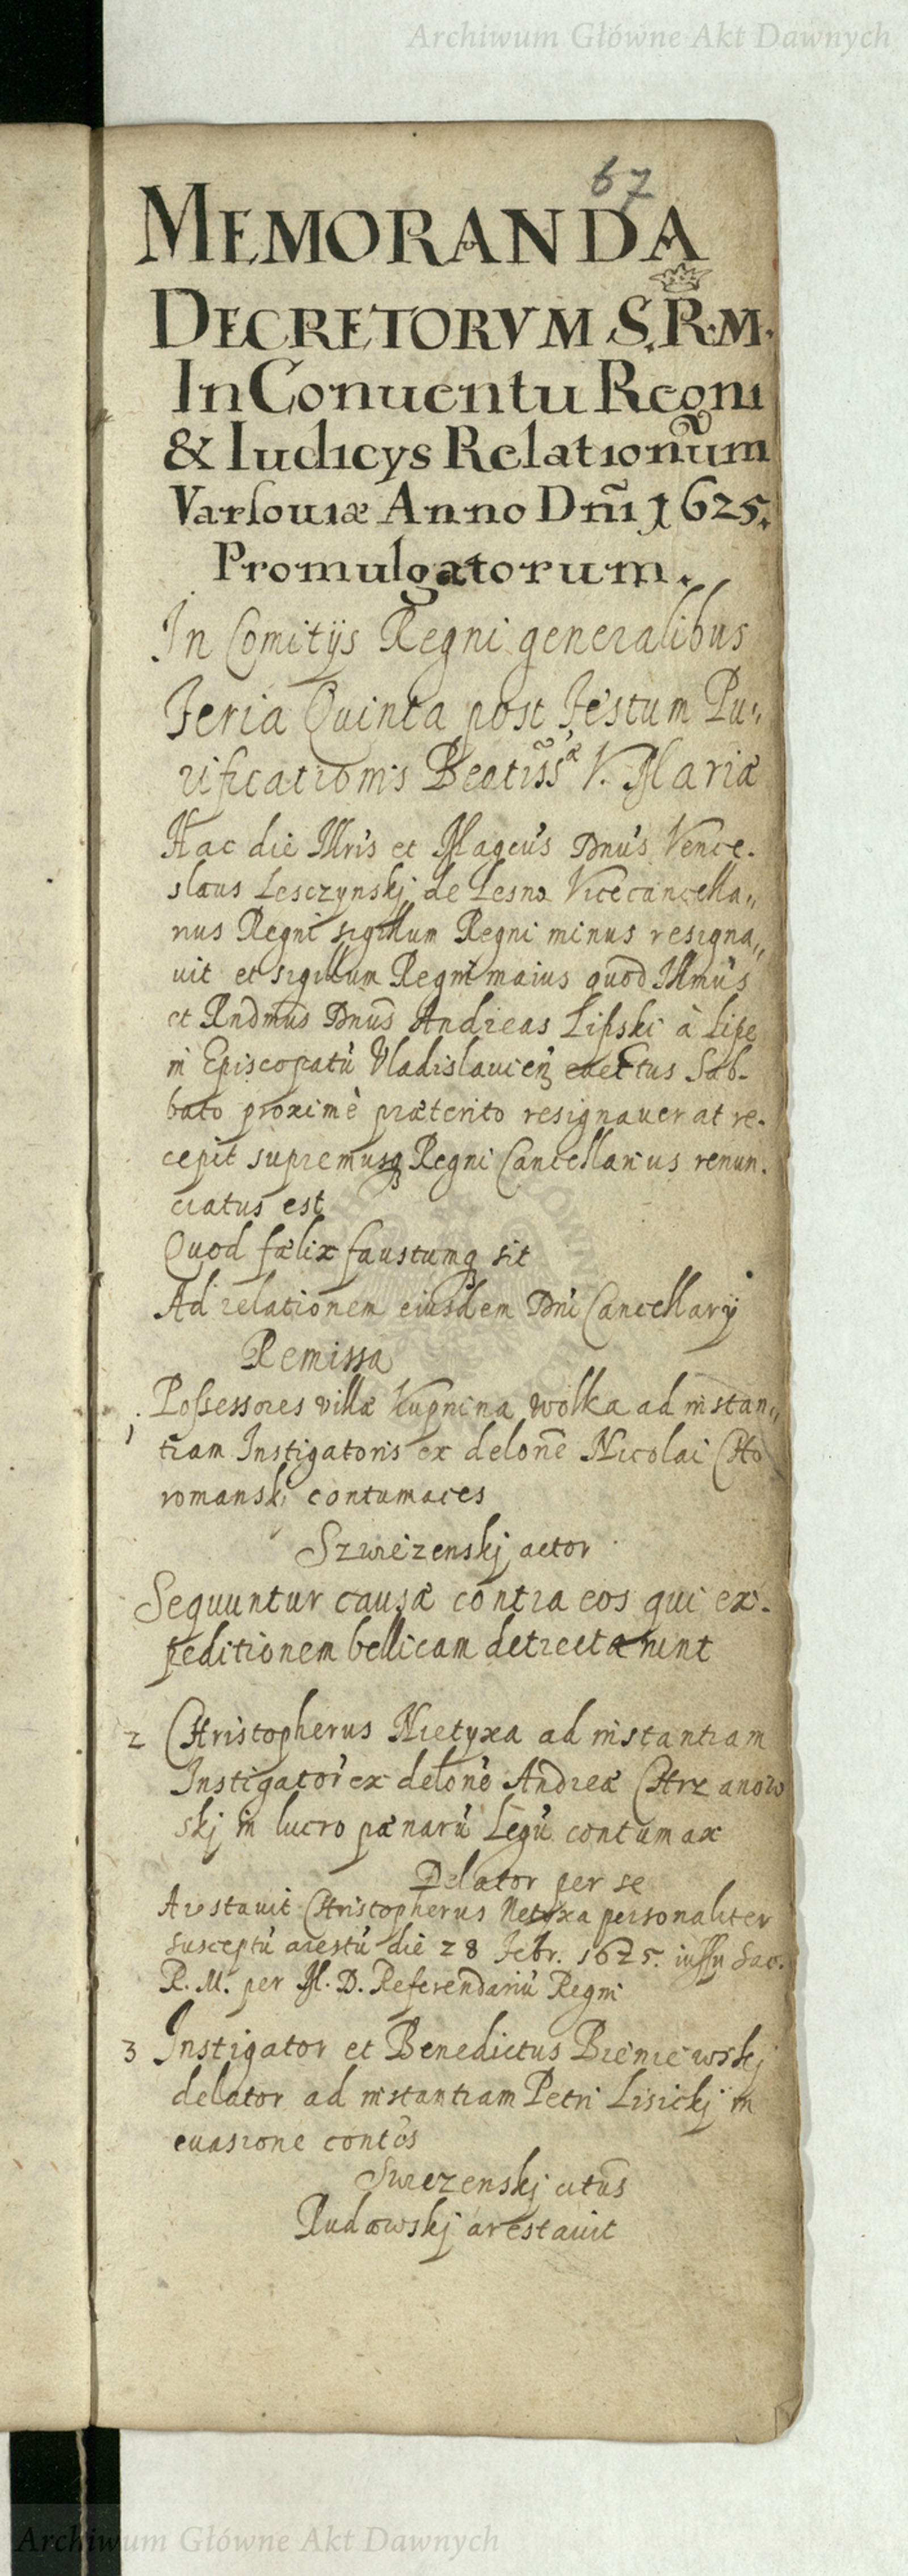 Archiwum Główne Akt Dawnych
67
MEMORANDA
DECRETORVM S.R.M.
In Conuentu Regni
& Iudicys Relationũm
Varsouiæ Anno Dñi 1625.
Promulgatorum.
In Comitijs Regni generalibus
Feria Quinta post Festum Pu„
rificationis Beatiss̃æ V. Mariæ
Hac die Illris et Magcus Dnus Vence.
slaus Lesczynskj de Lesno Vicecancella„
rius Regni sigillum Regni minus resigna„
uit et sigillum Regni maius quod Illmus
et Rndmus Dnus Andreas Lipski à Lipe
in Episcopatũ Vladislauień electus Sab-
bato proximè præterito resignauerat re-
cepit supremusq Regni Cancellarius renun.
ciatus est
Quod fælix faustumq sit
Ad relationem eiusdem Dni Cancellarij
Remissa
1 Possessores villæ Kupnina wolka ad instan„
tiam Instigatoris ex delone Nicolai Cho
romanski contumaces
Szwiezenskj actor
Sequuntur causæ contra eos qui ex-
peditionem bellicam detrectarunt
2 Christopherus Nietyxa ad instantiam
Instigator ex delone Andreæ Chrzanow
skj in lucro pænarũ Legũ contumax
Delator per se
Arestauit Christopherus Netyxa personaliter
susceptũ arestũ die 28 Febr. 1625. iussu Sac.
R. M. per M. D. Referendariũ Regni
3 Instigator et Benedictus Bieniewskj
delator ad instantiam Petri Lisickj in
euasione contos
Swiezenskj citus
Rudowskj arestauit
Archiwum Główne Akt Dawnych